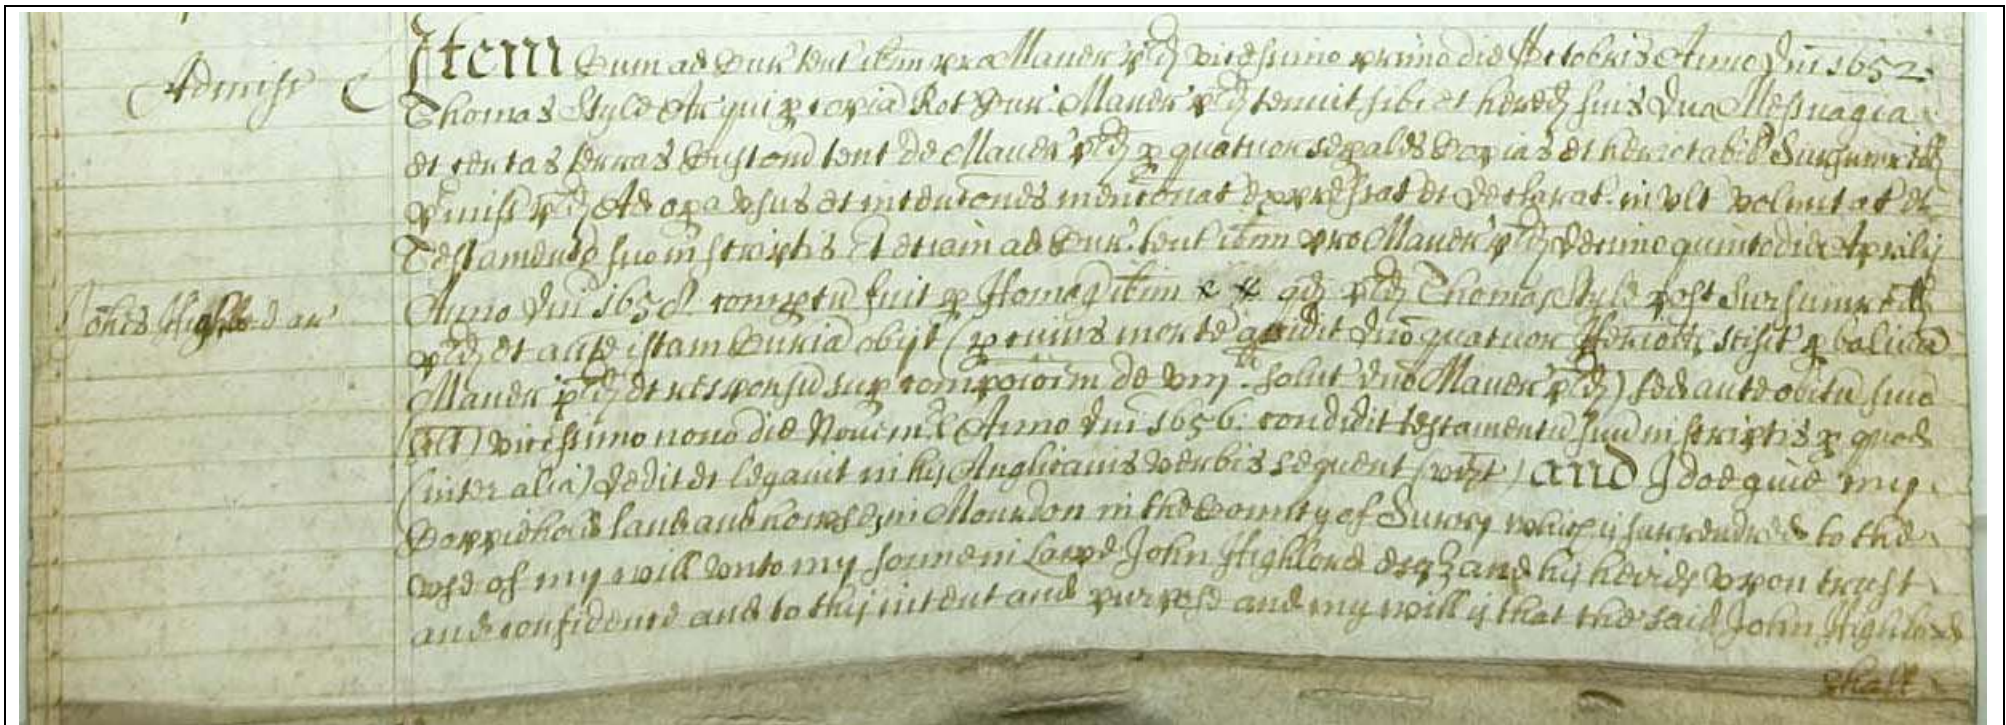 Admiss
Item Cum ad Cur tent ibm pro Maner pd vicesimo primo die Octobris Anno Dni 1652.
Thomas Style Ar qui p copiā Rot Cur Maner pd tenuit sibi et hered suis duo Messuagia
et certas terras Custom tent de Maner pd p quatuor sepales Copias et heriotabil Sursumredd
pmiss pd Ad opa usus et intencones menconat expressat et declarat in ult voluntat et
Testamento suo in scriptis Et etiam ad Cur tent ibm pro Maner pd decimo quinto die Aprilis
Johes Highlord ar
Anno Dni 1658 comptū fuit p Homag ibm qd pd Thomas Style post Sursumredd
pd et ante istam Curiā obijt (p cuius morte accidit dno quatuor Heriott, seisit p balivū
Maner pd et respons sup compoicōm de viij li solut dno Maner pd) sed ante obitū suū
(scilt) vicesimo nono die Novembr Anno Dni 1656 condidit testamentū suū in scriptis p quod
(inter alia) dedit et legavit in his Anglicanis verbis sequent (vizt) And I doe give my
Coppiehold land and howses in Mourdon in the County of Surrey which is surrendred to the
use of my will unto my sonne in Lawe John Highlord Esqr and his heires upon trust
and confidence and to this intent and purpose and my will is that the said John Highlord
shall